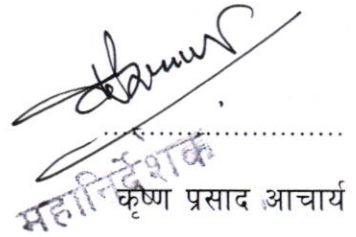 ........................................
महानिर्देशक
कृष्ण प्रसाद आचार्य